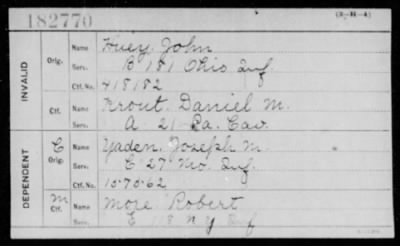 182770
(3-H-4)
INVALID
Orig.
Name Huey, John
Serv. B 181 Ohio Inf.
Ctf. No. 418182
Ctf.
Name Krout, Daniel M.
Serv. A 21 Pa. Cav.
DEPENDENT
C
Orig.
Name Yaden, Joseph M.
Serv. E 27 Mo. Inf.
Ctf. No. 107062
M
Ctf.
Name More Robert
Serv. E 118 N Y Inf